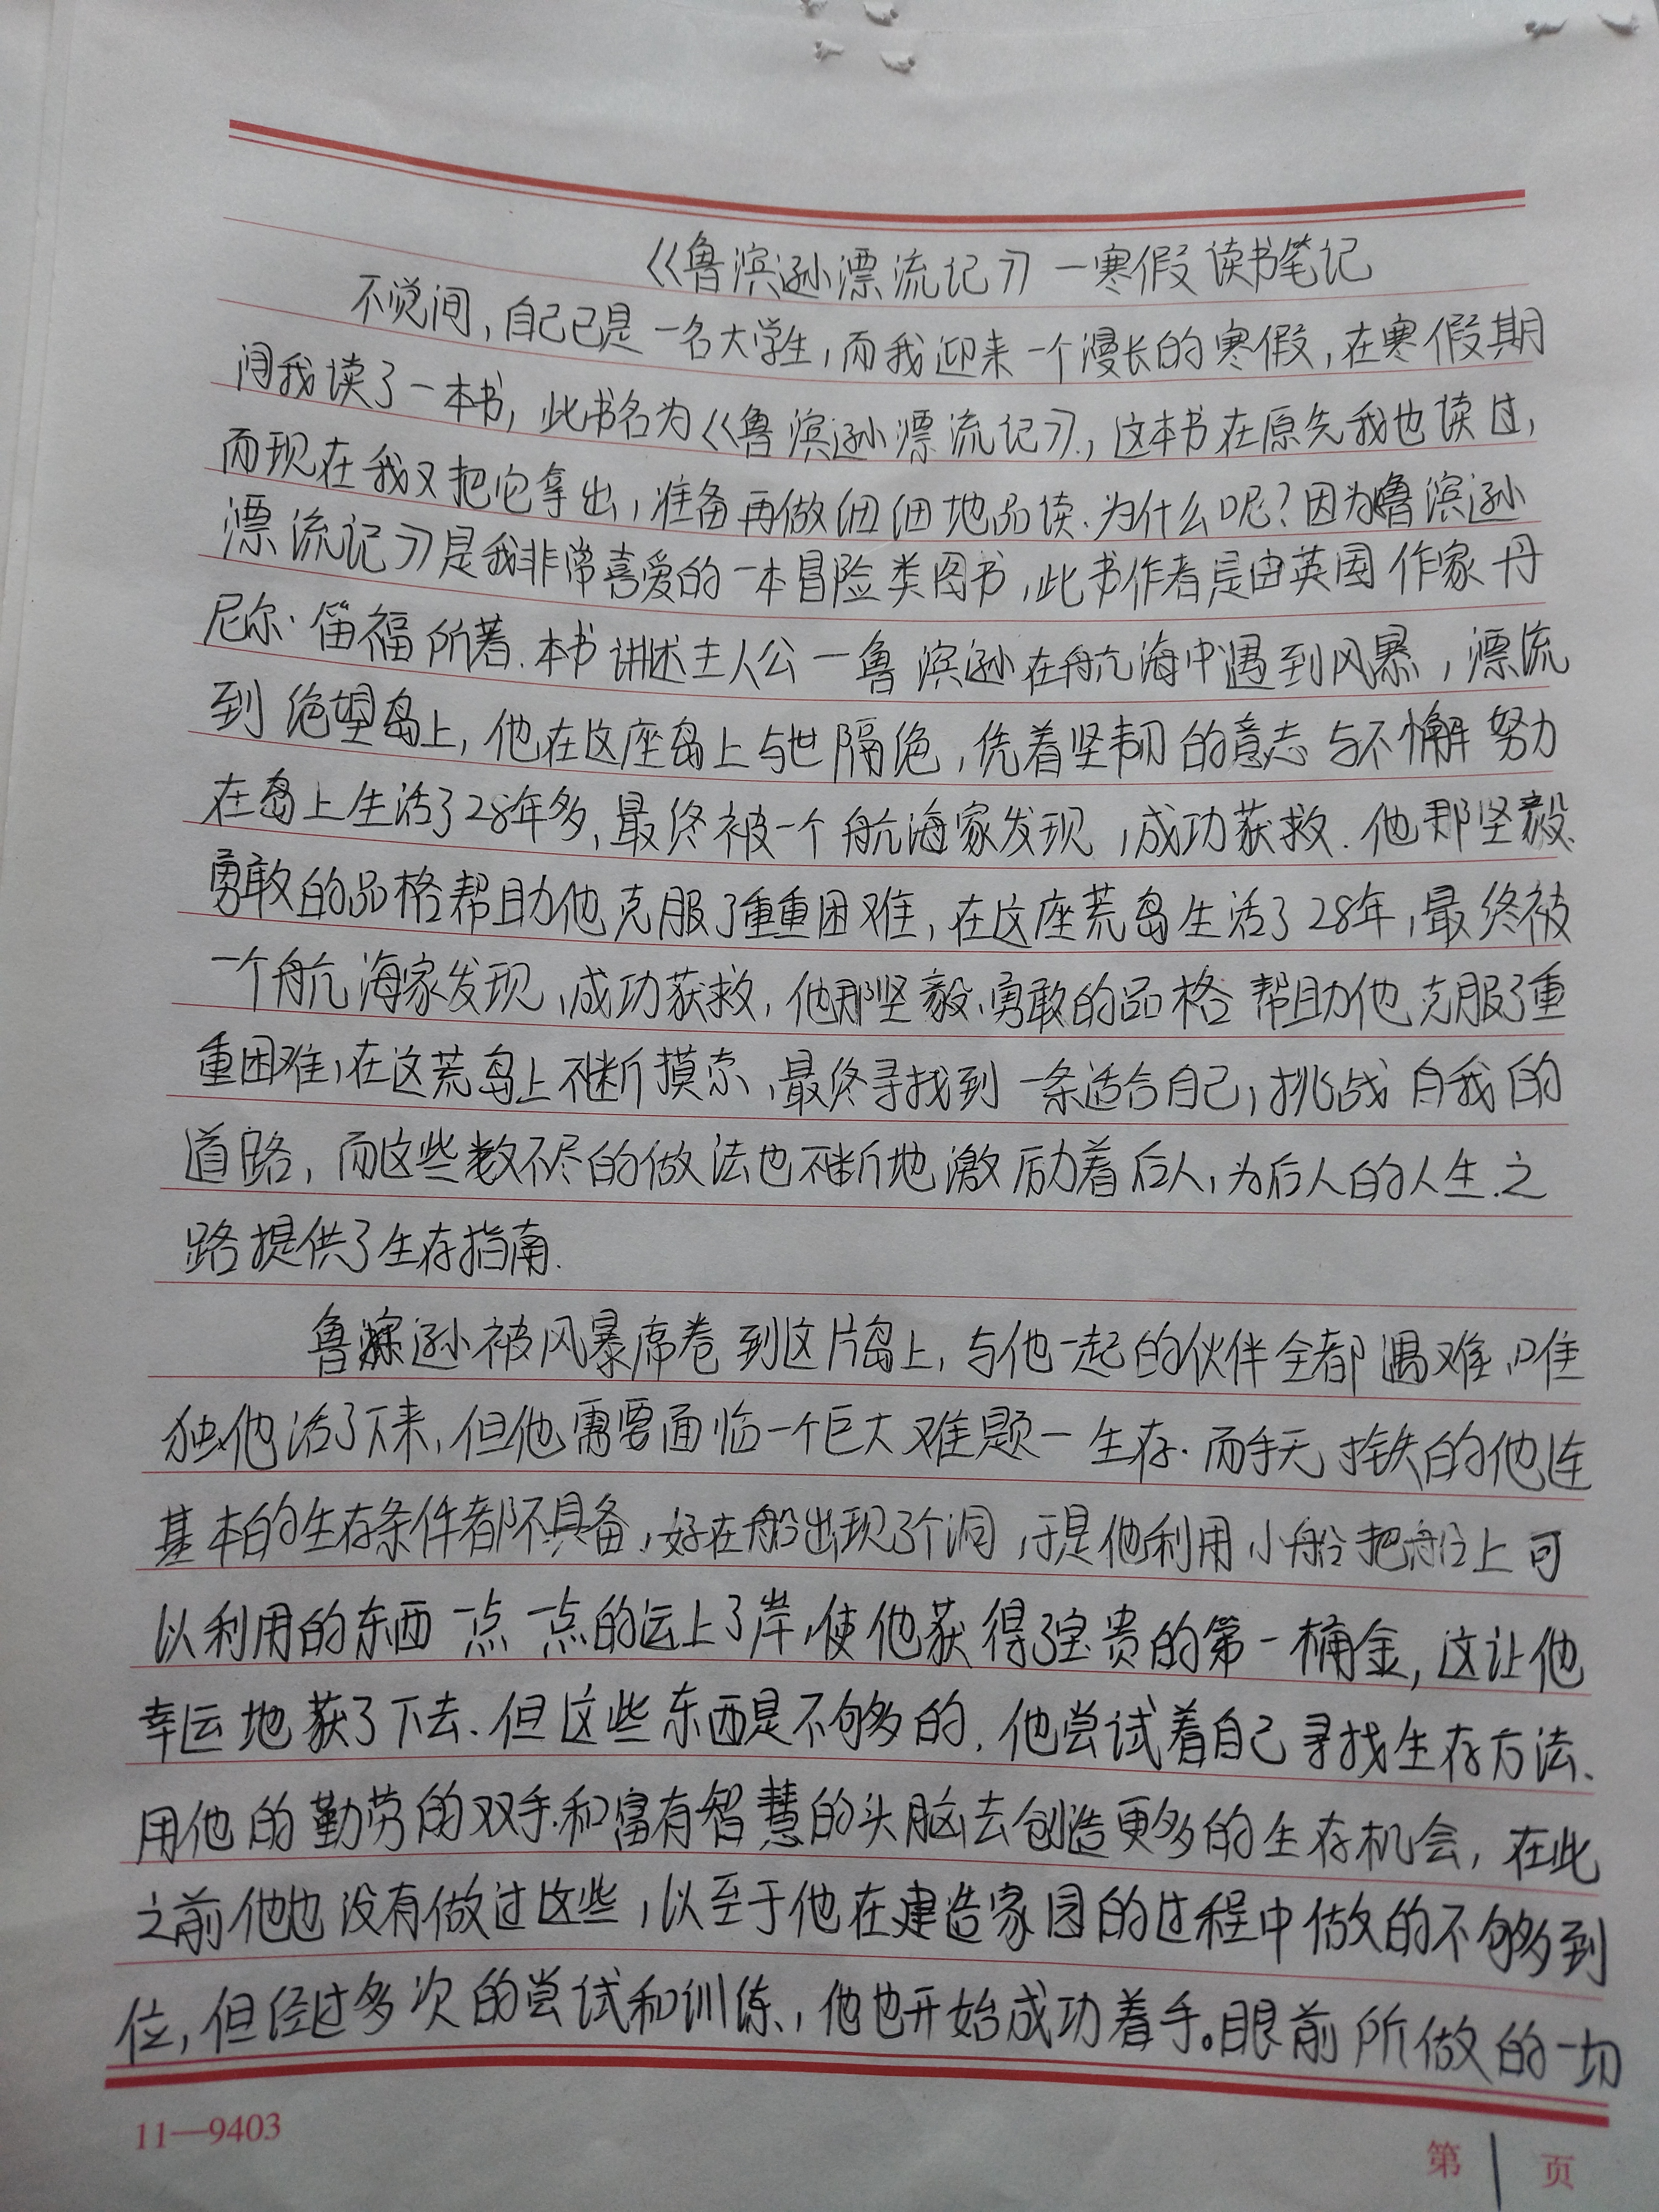 《鲁滨逊漂流记》一寒假读书笔记
不觉间,自己已是一名大学生,而我迎来一个漫长的寒假,在寒假期
间我读了一本书,此书名为《鲁滨逊漂流记》,这本书在原先我也读过,
而现在我又把它拿出,准备再做细细地品读.为什么呢?因为鲁滨逊
漂流记》是我非常喜爱的一本冒险类图书,此书作者是由英国作家丹
尼尔·笛福所著.本书讲述主人公一鲁滨逊在航海中遇到风暴,漂流
到绝望岛上,他在这座岛上与世隔绝,凭着坚韧的意志与不懈努力
在岛上生活了28年多,最终被一个航海家发现,成功获救.他那坚毅、
勇敢的品格帮助他克服了重重困难,在这座荒岛生活了28年,最终被
一个航海家发现,成功获救,他那坚毅、勇敢的品格帮助他克服了重
重困难,在这荒岛上不断摸索,最终寻找到一条适合自己,挑战自我的
道路,而这些数不尽的做法也不断地激励着后人,为后人的人生之
路提供了生存指南.
鲁滨逊被风暴席卷到这片岛上,与他一起的伙伴全都遇难,唯
独他活了下来,但他需要面临一个巨大难题一生存.而手无寸铁的他连
基本的生存条件都不具备,好在船出现了个洞,于是他利用小船把船上可
以利用的东西一点一点的运上了岸,使他获得了宝贵的第一桶金,这让他
幸运地获了下去.但这些东西是不够多的,他尝试着自己寻找生存方法、
用他的勤劳的双手和富有智慧的头脑去创造更多的生存机会,在此
之前他也没有做过这些,以至于他在建造家园的过程中做的不够到
位,但经过多次的尝试和训练,他也开始成功着手。眼前所做的一切
11—9403
第1页